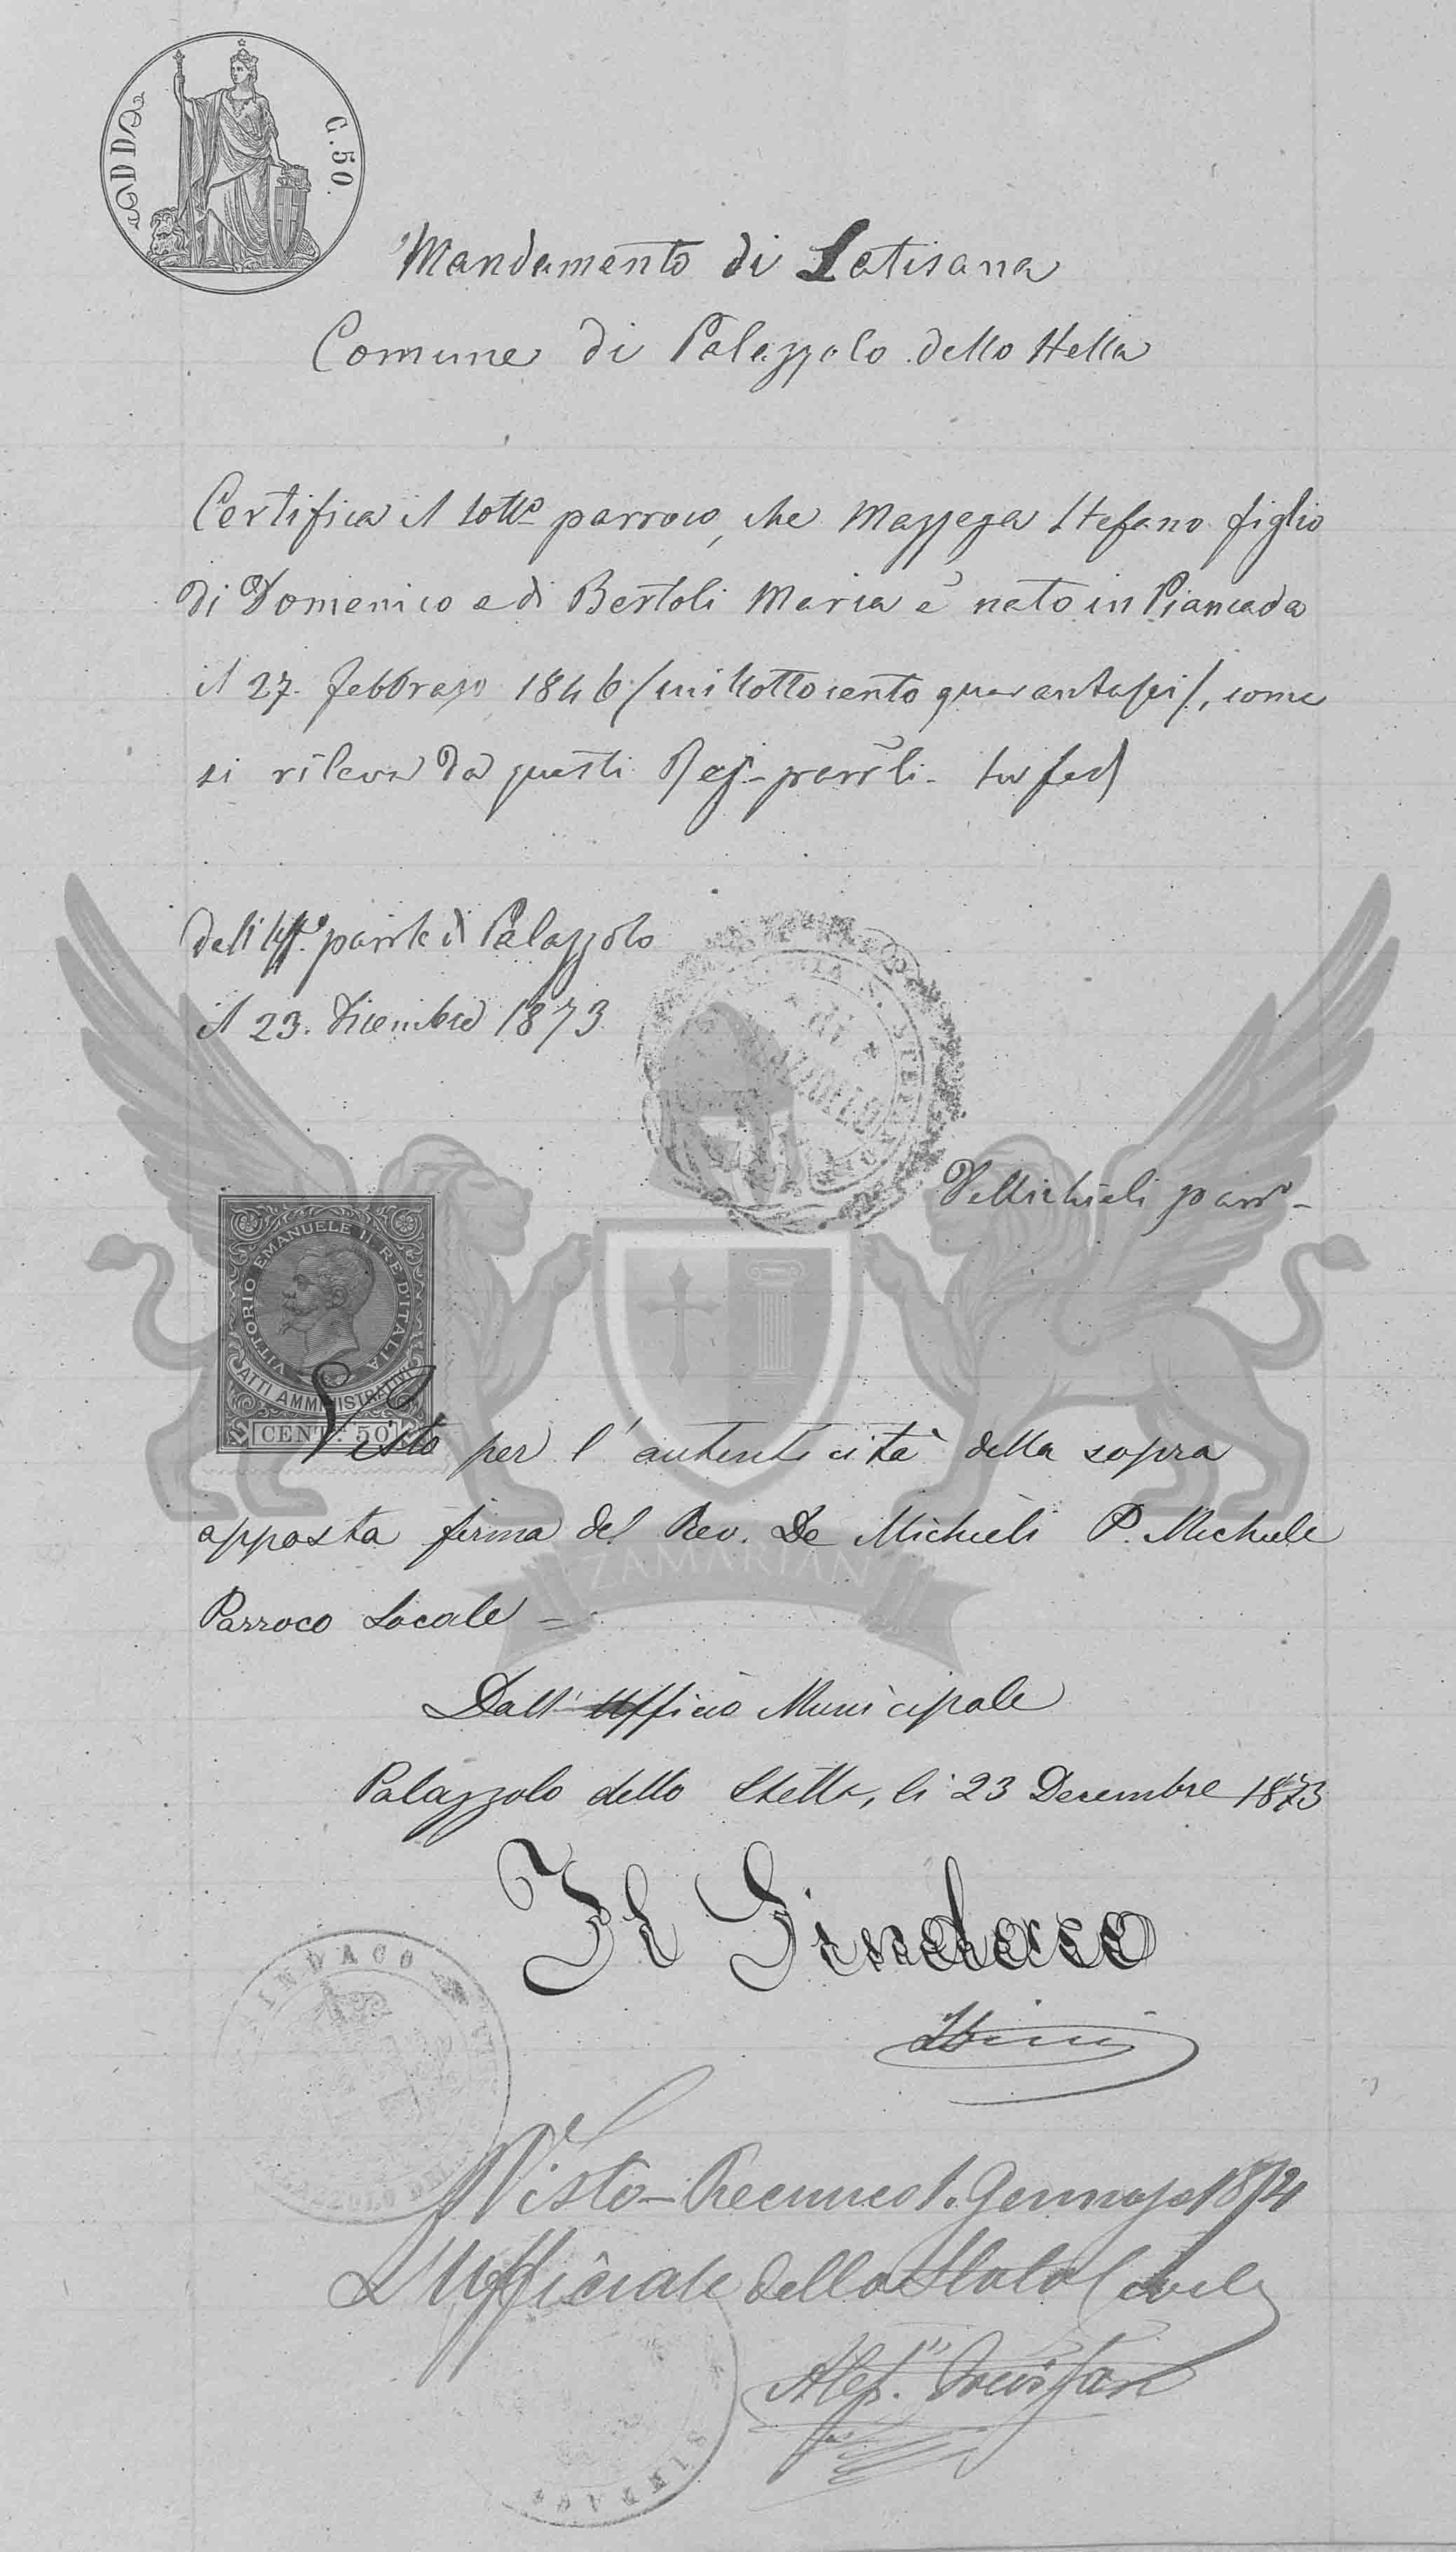 C. 50
Mandamento di Latisana
Comune di Palazzolo dello Stella
Certifica il sotto parroco, che Mazzega Stefano figlio
di Domenico e di Bertoli Maria è nato in Piancada
il 27. febbrajo 1846 /millottocento quarantasei/, come
si rileva da questi Reg. parrli. In fed
dell'Uffo. parrle di Palazzolo
il 23. Dicembre 1873
DeMichieli parro
VITTORIO EMANUELE II RE D'ITALIA
ATTI AMMINISTRATIVI
CENT. 50
Visto per l'autenticità della sopra
apposta firma del Rev. De Michieli P. Michele
ZAMARIAN
Parroco Locale
Dall'Ufficio Municipale
Palazzolo dello Stella, li 23 Decembre 1873
Il Sindaco
SINDACO
Visto - Precenico 1. Gennajo 1874
L'Ufficiale dello Stato Civile
Aless. Trevisan
SINDACO